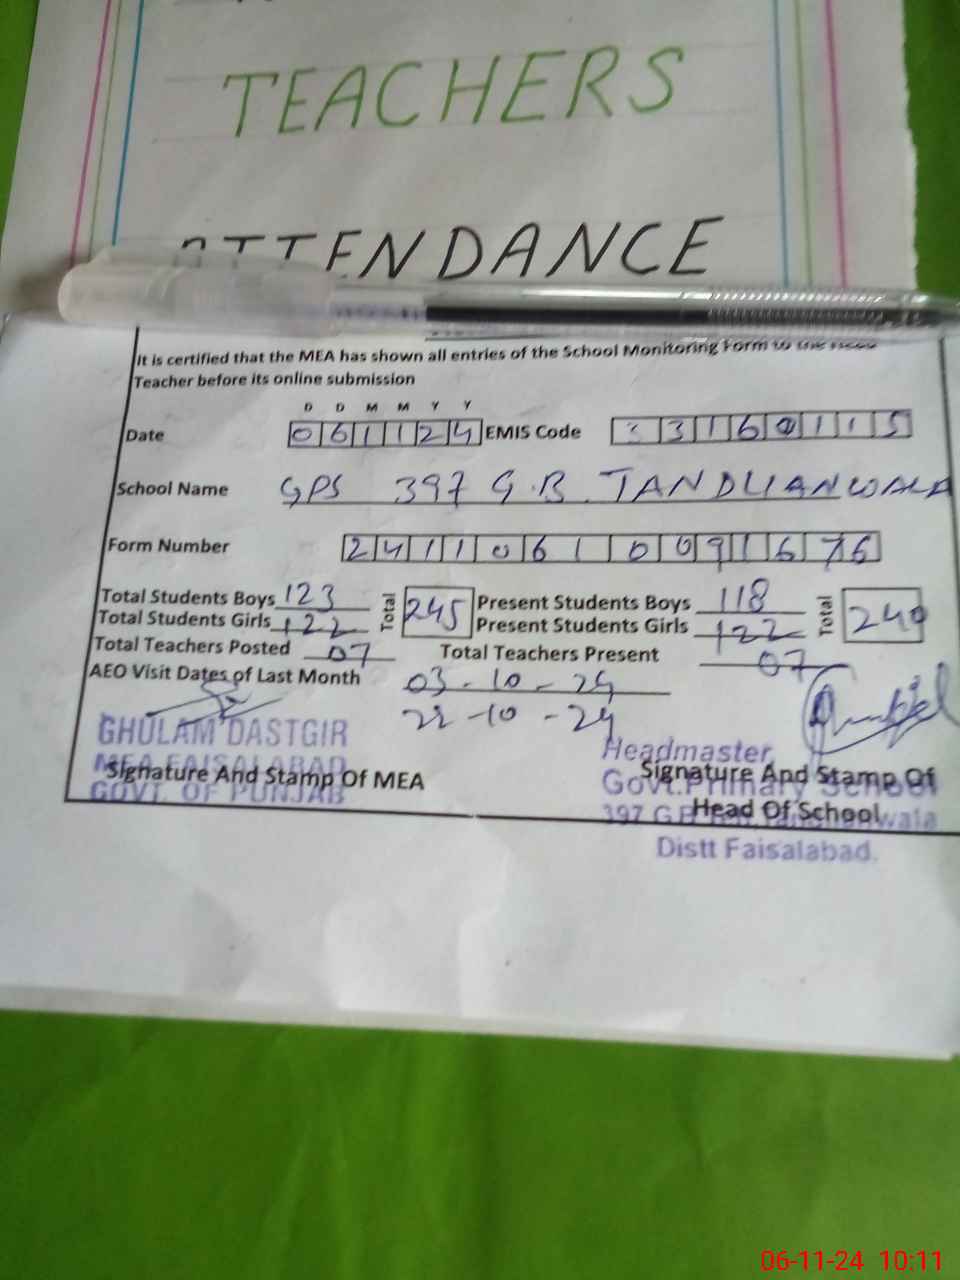 TEACHERS
ATTENDANCE
It is certified that the MEA has shown all entries of the School Monitoring Form to the Head
Teacher before its online submission
D D M M Y Y
Date 061124 EMIS Code 33160115
School Name GPS 397 G.B. TANDLIANWALA
Form Number 24110610091676
Total Students Boys 123 Total 245 Present Students Boys 118 Total 240
Total Students Girls 122 Present Students Girls 122
Total Teachers Posted 07 Total Teachers Present 07
AEO Visit Dates of Last Month 03-10-24
22-10-24
GHULAM DASTGIR
MEA FAISALABAD
GOVT. OF PUNJAB
Signature And Stamp Of MEA
Headmaster
Govt. Primary School
397 G.B.
Distt Faisalabad.
Signature And Stamp Of
Head Of School
06-11-24 10:11